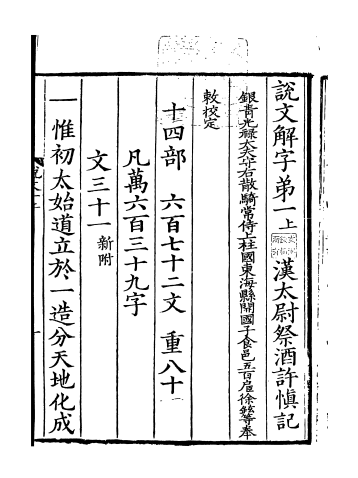 說文解字弟一上 漢太尉祭酒許慎記
銀青光祿大夫守右散騎常侍上柱國東海縣開國子食邑五百戶徐鉉等奉
敕校定
十四部 六百七十二文 重八十
凡萬六百三十九字
文三十一 新附
一 惟初太始道立於一造分天地化成